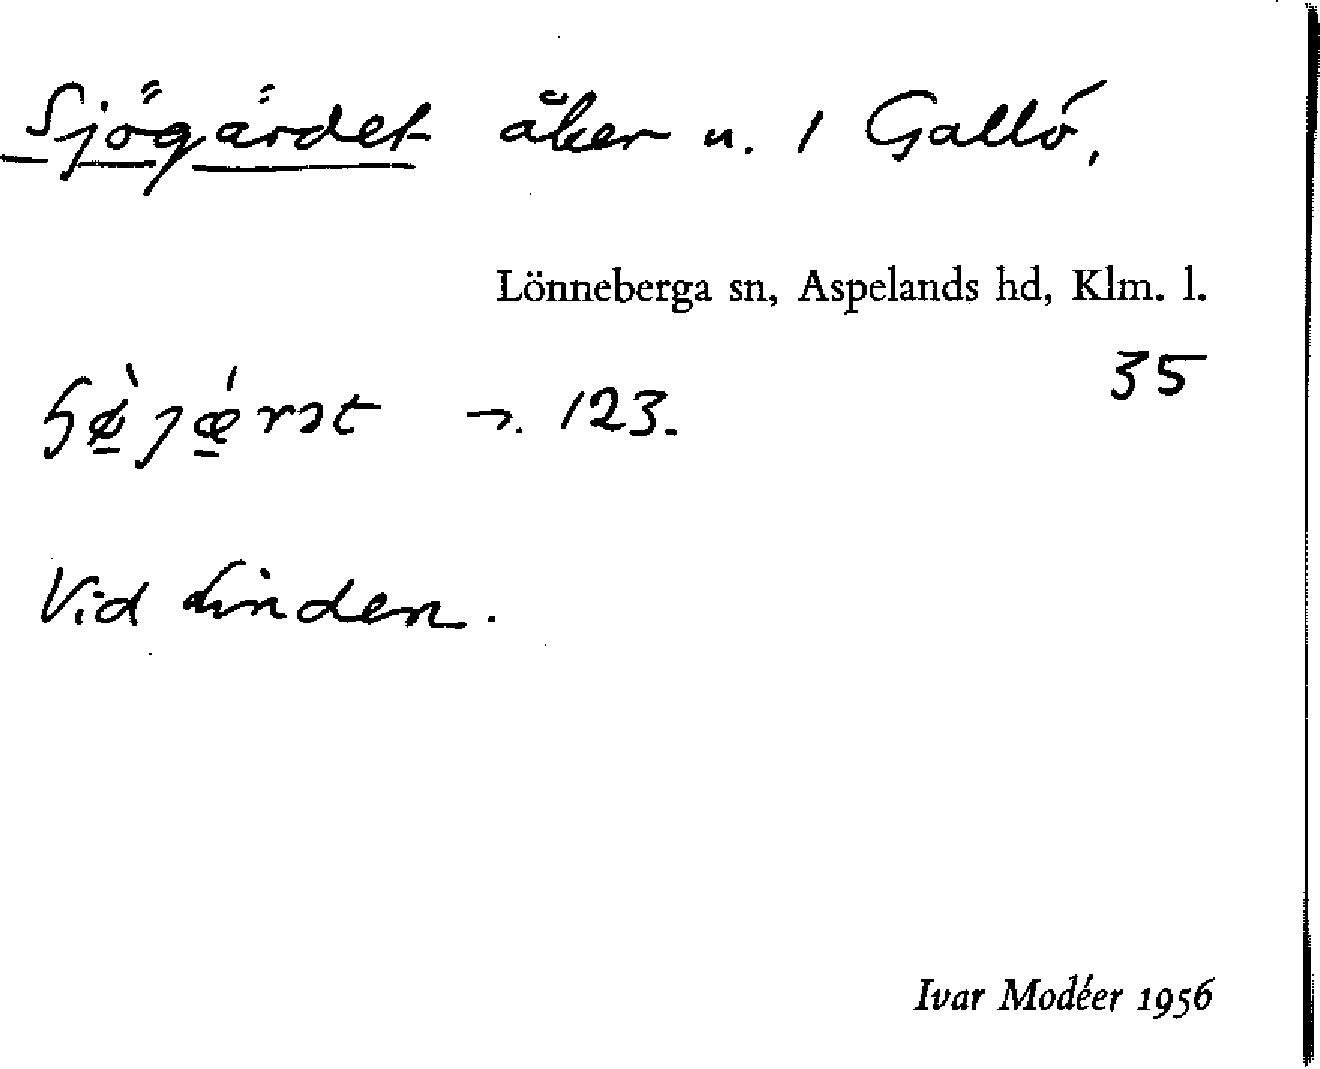 Sjögärdet åker u. 1 Gallö,
Lönneberga sn, Aspelands hd, Klm. l.
35
ɧø̀jǽrət ¬. 123.
Vid Linden.
Ivar Modéer 1956